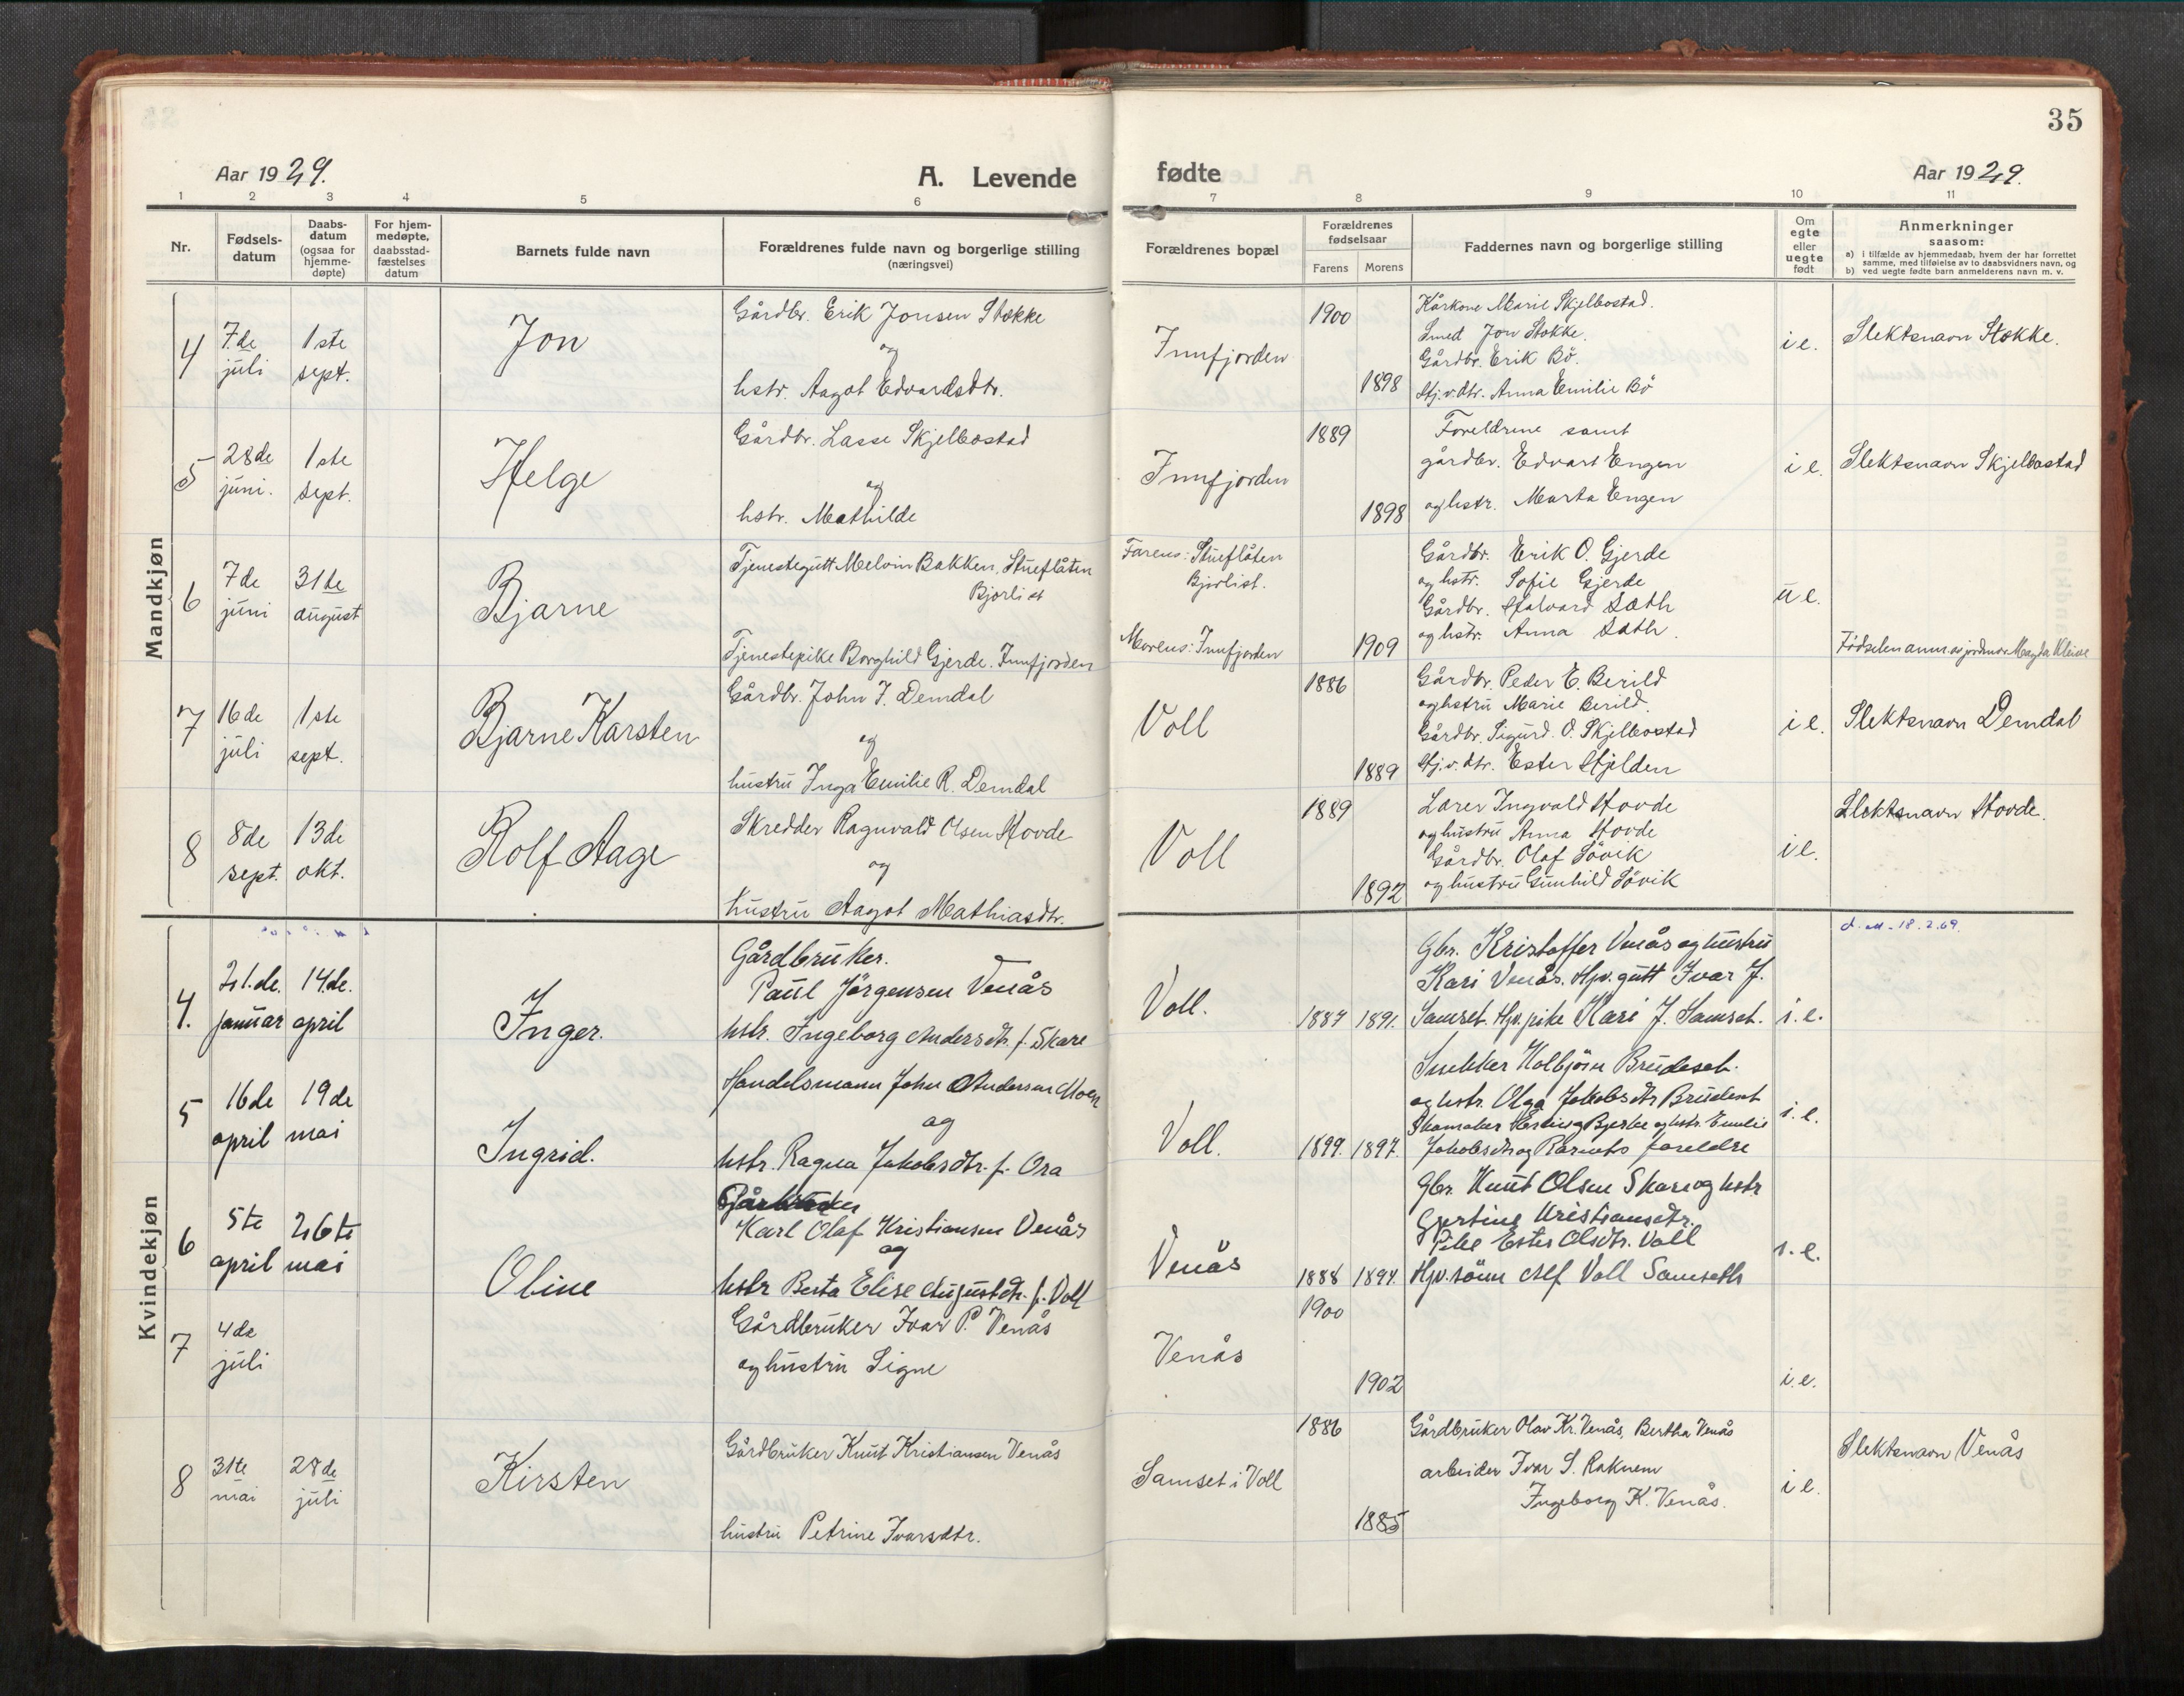 35
Aar 1929.
A. Levende
fødte
Aar 1929.
1 2 3 4 5 6 7 8 9 10 11
Nr.
Fødsels-
datum
Daabs-
datum
(ogsaa for
hjemme-
døpte)
For hjem-
medøpte,
daabsstad-
fæstelses
datum
Barnets fulde navn
Forældrenes fulde navn og borgerlige stilling
(næringsvei)
Forældrenes bopæl
Forældrenes
fødselsaar
Farens Morens
Faddernes navn og borgerlige stilling
Om
egte
eller
uegte
født
Anmerkninger
saasom:
a) i tilfælde av hjemmedaab, hvem der har forrettet
samme, med tilføielse av to daabsvidners navn, og
b) ved uegte fødte barn anmelderens navn m. v.
Mandkjøn
4
7.de
juli
1ste
sept.
Jon
Gårdbr. Erik Jonsen Stokke
og
hstr. Aagot Edvardsdtr.
Innfjorden
1900
1898
Kårkone Marie Skjelbostad.
Smed Jon Stokke.
Gårdbr. Erik Bö.
Hj.v.dtr. Anna Emilie Bö
i e.
Slektsnavn Stokke.
5
28de
juni.
1ste
sept.
Helge
Gårdbr. Lasse Skjelbostad
og
hstr. Mathilde
Innfjorden
1889
1898
Foreldrene samt
gårdbr. Edvart Engen
og hstr. Marta Engen
i e.
Slektsnavn Skjelbostad
6
7de
juni
31te
august
Bjarne
Tjenestegutt Melvin Bakken, Stueflåten
Bjorlist
Tjenestepike Borghild Gjerde. Innfjorden
Farens: Stueflåten
Bjorlist.
Morens: Innfjorden
1909
Gårdbr. Erik O. Gjerde
og hstr. Sofie Gjerde
Gårdbr. Halvard Sæth
og hstr. Anna Sæth.
u e.
Fødselen anm. av jordmor Magda Kleive
7
16de
juli
1ste
sept.
Bjarne Karsten
Gårdbr. John J. Demdal
og
hustru Inga Emilie R. Demdal
Voll
1886
1889
Gårdbr. Peder E. Berild
og hstru Marie Berild.
Gårdbr. Sigurd. O. Skjelbostad
Hj.v.dtr. Ester Hjelden
i e.
Slektsnavn Demdal
8
8de
sept.
13de
okt.
Rolf Aage
Skredder Ragnvald Olsen Hovde
og
hustru Aagot Mathiasdtr.
Voll
1889
1892
Lærer Ingvald Hovde
og hustru Anna Hovde
Gårdbr. Olaf Sövik
og hustru Gunhild Sövik
i e.
Slektsnavn Hovde.
Kvindekjøn
4.
21.de.
januar
14de.
april
Inger.
Gårdbruker.
Paul Jörgensen Venås
hstr. Ingeborg Andersdtr. f. Skare
Voll.
1887 1891.
Gbr. Kristoffer Venås og hustru
Kari Venås. Hjv. gutt Ivar J.
Samset. Hjv. pike Kari J. Samset.
i. e.
18.2.69.
5
16de
april
19de
mai
Ingrid.
Handelsmann John Andersen Moen
og
hstr. Ragna Jakobsdtr. f. Ora
Voll.
1899. 1897.
Snekker Kolbjörn Brudeset.
og hstr. Olga Jakobsdtr Brudeset
Skomaker Bjerke og hstr. Emelie
Jakobsdtr og Barnets foreldre
i. e.
6
5te
april
26te
mai
Oline
Gårdbruker
Karl Olaf Kristiansen Venås
og
hstr Berta Elise Augustdtr. f. Voll
Venås
1888 1894.
Gbr. Knut Olsen Skare og hstr
Gjertine Kristiansdtr.
Pike Ester Olsdtr. Voll
Hjv. sönn Alf Voll Samseth
i. e.
7
4de
juli
Gårdbruker Ivar P. Venås
og hustru Signe
Venås
1900
1902
i. e.
8
31te
mai
28de
juli
Kirsten
Gårdbruker Knut Kristiansen Venås
hustru Petrine Ivarsdtr.
Samset i Voll
1886
1885
Gårdbruker Olav Kr. Venås, Bertha Venås
arbeider Ivar S. Raknem
Ingeborg K. Venås.
i e.
Slektsnavn Venås